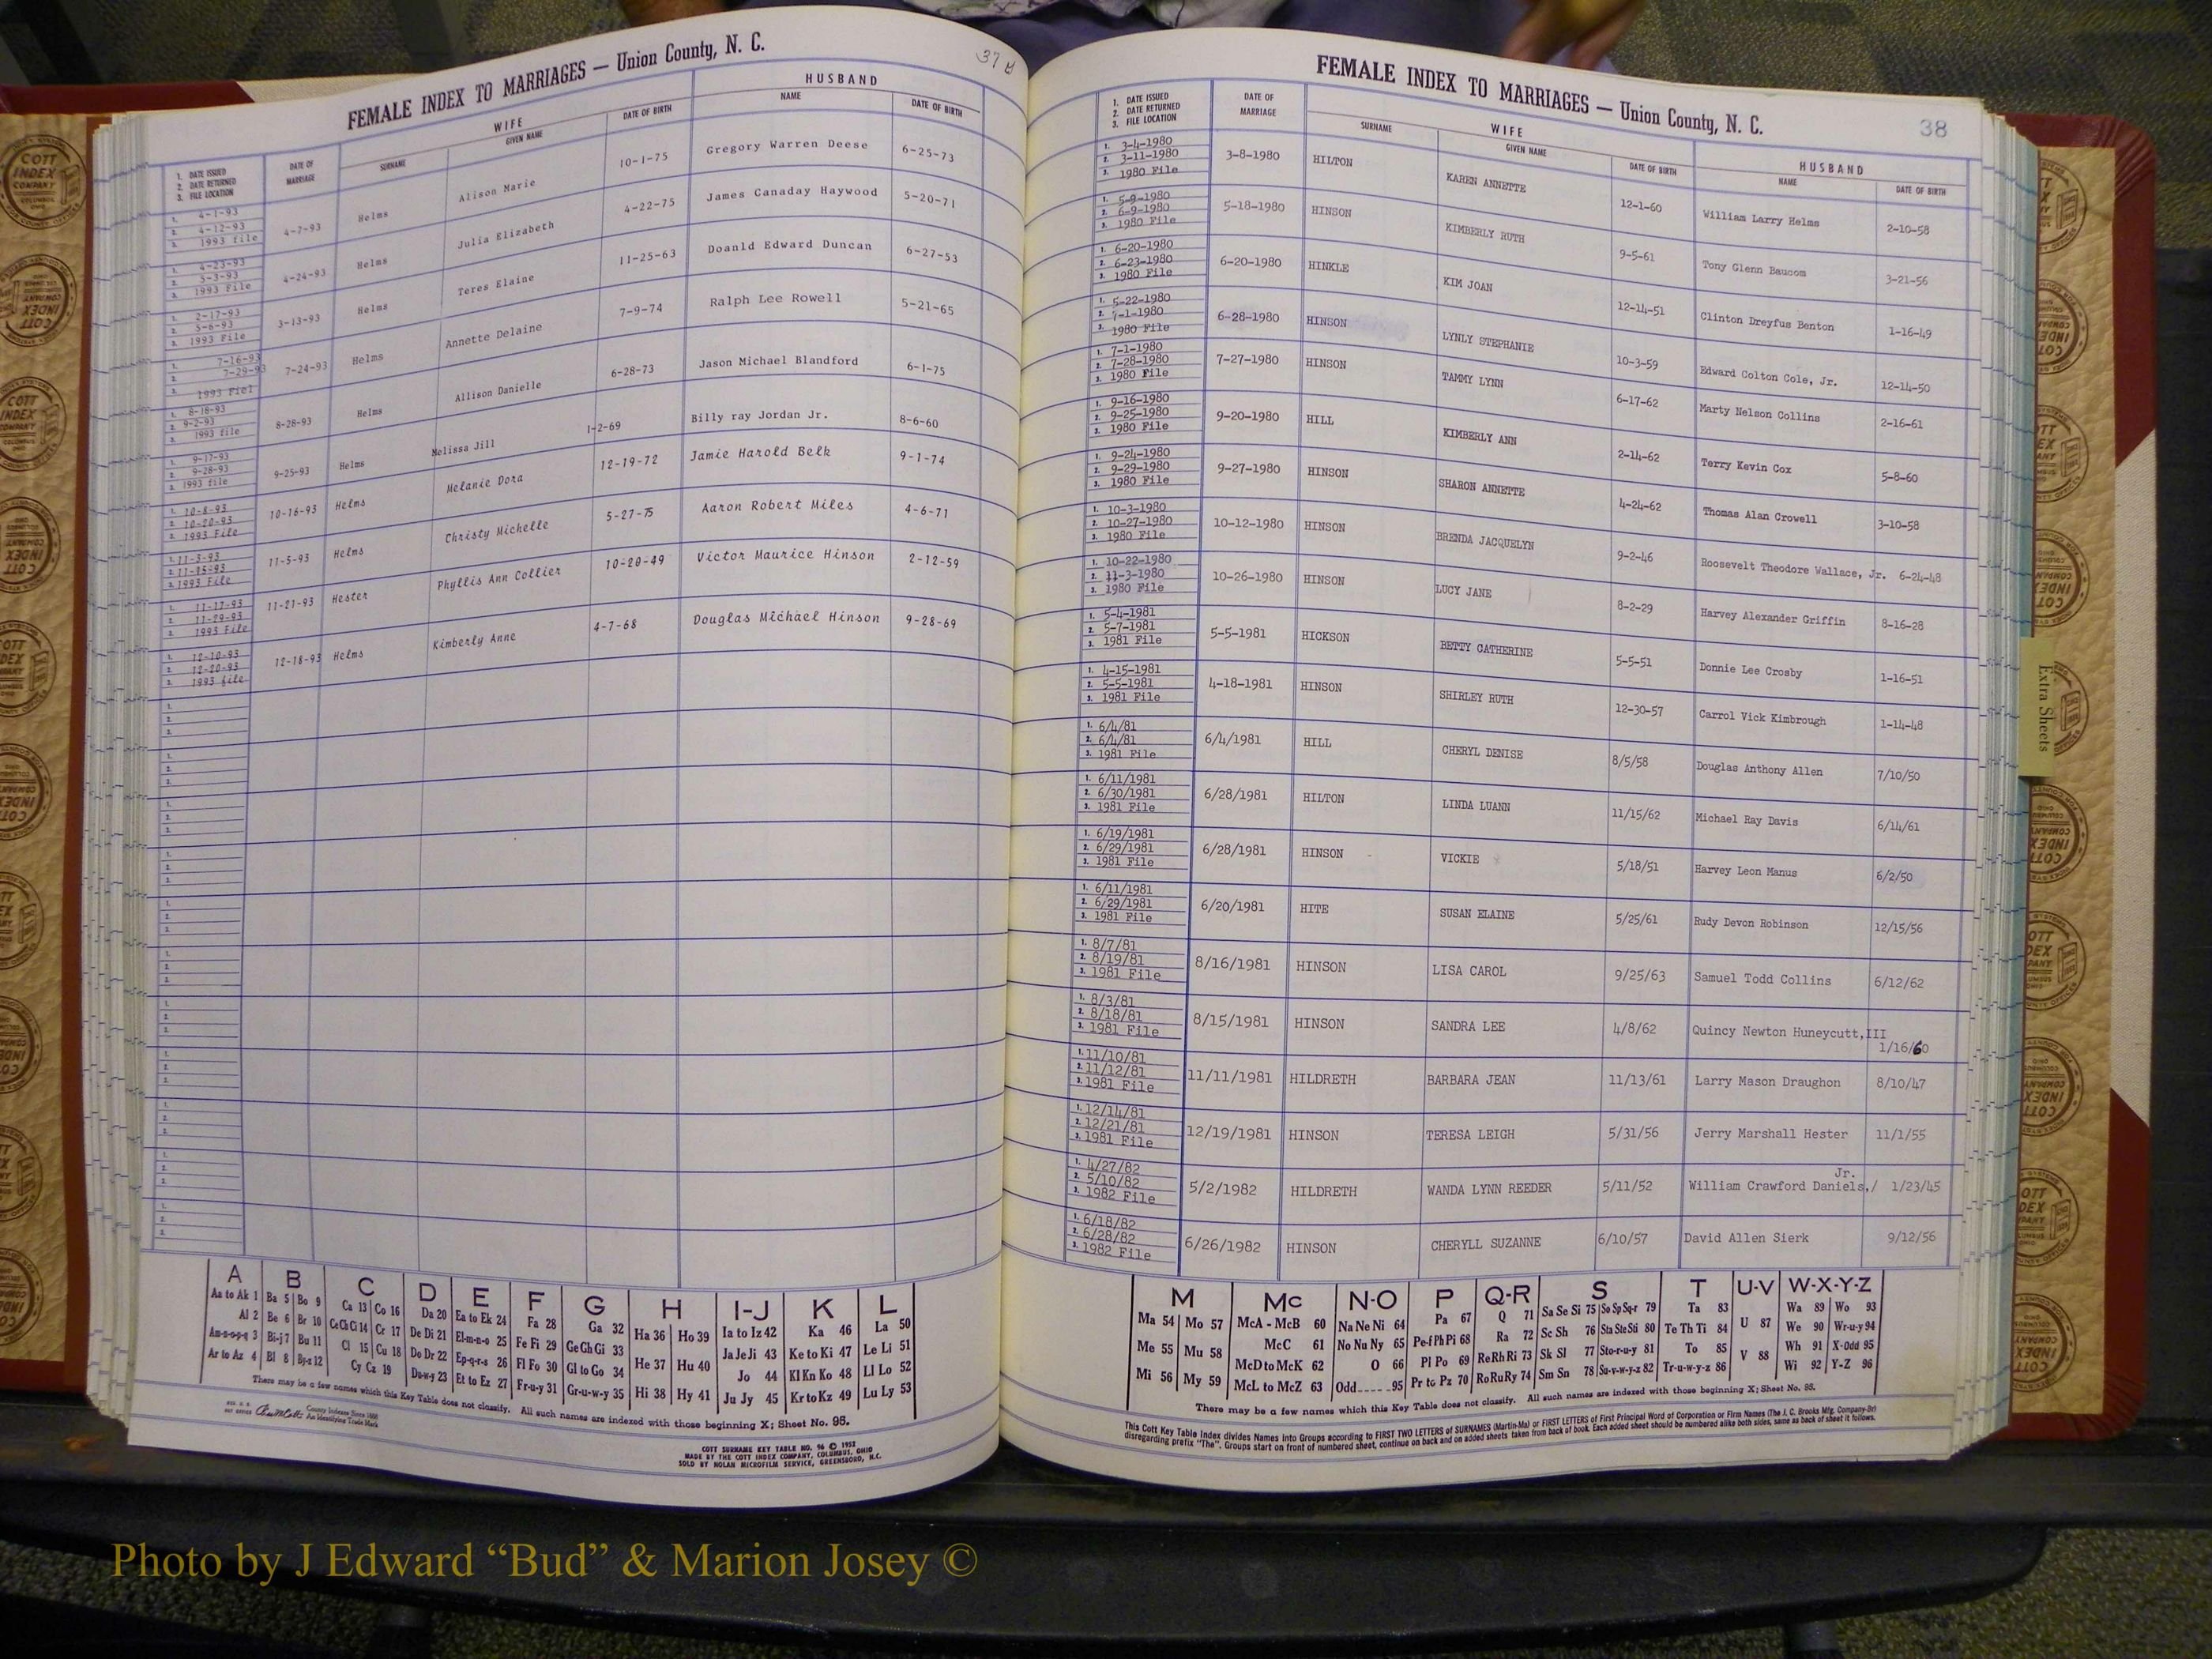 FEMALE INDEX TO MARRIAGES — Union County, N. C.
1. DATE ISSUED
2. DATE RETURNED
3. FILE LOCATION
DATE OF MARRIAGE
WIFE
SURNAME GIVEN NAME DATE OF BIRTH
HUSBAND
NAME DATE OF BIRTH
1. 4-1-93
2. 4-12-93 4-7-93 Helms Alison Marie 10-1-75 Gregory Warren Deese 6-25-73
3. 1993 file
1. 4-23-93
2. 5-3-93 4-24-93 Helms Julia Elizabeth 4-22-75 James Canaday Haywood 5-20-71
3. 1993 File
1. 2-17-93
2. 5-6-93 3-13-93 Helms Teres Elaine 11-25-63 Doanld Edward Duncan 6-27-53
3. 1993 File
1. 7-16-93
2. 7-29-93 7-24-93 Helms Annette Delaine 7-9-74 Ralph Lee Rowell 5-21-65
3. 1993 Fiel
1. 8-18-93
2. 9-2-93 8-28-93 Helms Allison Danielle 6-28-73 Jason Michael Blandford 6-1-75
3. 1993 file
1. 9-17-93
2. 9-28-93 9-25-93 Helms Melissa Jill 1-2-69 Billy ray Jordan Jr. 8-6-60
3. 1993 file
1. 10-8-93
2. 10-20-93 10-16-93 Helms Melanie Dora 12-19-72 Jamie Harold Belk 9-1-74
3. 1993 File
1. 11-3-93
2. 11-15-93 11-5-93 Helms Christy Michelle 5-27-75 Aaron Robert Miles 4-6-71
3. 1993 File
1. 11-17-93
2. 11-29-93 11-21-93 Hester Phyllis Ann Collier 10-20-49 Victor Maurice Hinson 2-12-59
3. 1993 File
1. 12-10-93
2. 12-20-93 12-18-93 Helms Kimberly Anne 4-7-68 Douglas Michael Hinson 9-28-69
3. 1993 file
A B C D E F G H I-J K L
Aa to Ak 1 Ba 5 Bo 9 Ca 13 Co 16 Da 20 Ea to Ek 24 Fa 28 Ga 32 Ha 36 Ho 39 Ia to Iz 42 Ka 46 La 50
Al 2 Be 6 Br 10 Ce Ch Ci 14 Cr 17 De Di 21 El-m-n-o 25 Fe Fi 29 Ge Gh Gi 33 Ja Je Ji 43 Ke to Ki 47 Le Li 51
Am-n-o-p-q 3 Bi-j 7 Bu 11 Cl 15 Cu 18 Do Dr 22 Ep-q-r-s 26 Fl Fo 30 Gl to Go 34 He 37 Hu 40 Jo 44 Kl Kn Ko 48 Ll Lo 52
Ar to Az 4 Bl 8 By-z 12 Cy Cz 19 Du-w-y 23 Et to Ez 27 Fr-u-y 31 Gr-u-w-y 35 Hi 38 Hy 41 Ju Jy 45 Kr to Kz 49 Lu Ly 53
There may be a few names which this Key Table does not classify. All such names are indexed with those beginning X; Sheet No. 95.
County Indexes Since 1888
An Identifying Trade Mark
COTT SURNAME KEY TABLE NO. 96 © 1952
MADE BY THE COTT INDEX COMPANY, COLUMBUS, OHIO
SOLD BY NOLAN MICROFILM SERVICE, GREENSBORO, N.C.
FEMALE INDEX TO MARRIAGES — Union County, N. C.
38
1. DATE ISSUED
2. DATE RETURNED
3. FILE LOCATION
DATE OF MARRIAGE
WIFE
SURNAME GIVEN NAME DATE OF BIRTH
HUSBAND
NAME DATE OF BIRTH
1. 3-4-1980
2. 3-11-1980 3-8-1980 HILTON KAREN ANNETTE 12-1-60 William Larry Helms 2-10-58
3. 1980 File
1. 5-9-1980
2. 6-9-1980 5-18-1980 HINSON KIMBERLY RUTH 9-5-61 Tony Glenn Baucom 3-21-56
3. 1980 File
1. 6-20-1980
2. 6-23-1980 6-20-1980 HINKLE KIM JOAN 12-14-51 Clinton Dreyfus Benton 1-16-49
3. 1980 File
1. 5-22-1980
2. 7-1-1980 6-28-1980 HINSON LYNLY STEPHANIE 10-3-59 Edward Colton Cole, Jr. 12-14-50
3. 1980 File
1. 7-1-1980
2. 7-28-1980 7-27-1980 HINSON TAMMY LYNN 6-17-62 Marty Nelson Collins 2-16-61
3. 1980 File
1. 9-16-1980
2. 9-25-1980 9-20-1980 HILL KIMBERLY ANN 2-14-62 Terry Kevin Cox 5-8-60
3. 1980 File
1. 9-24-1980
2. 9-29-1980 9-27-1980 HINSON SHARON ANNETTE 4-24-62 Thomas Alan Crowell 3-10-58
3. 1980 File
1. 10-3-1980
2. 10-27-1980 10-12-1980 HINSON BRENDA JACQUELYN 9-2-46 Roosevelt Theodore Wallace, Jr. 6-24-48
3. 1980 File
1. 10-22-1980
2. 11-3-1980 10-26-1980 HINSON LUCY JANE 8-2-29 Harvey Alexander Griffin 8-16-28
3. 1980 File
1. 5-4-1981
2. 5-7-1981 5-5-1981 HICKSON BETTY CATHERINE 5-5-51 Donnie Lee Crosby 1-16-51
3. 1981 File
1. 4-15-1981
2. 5-5-1981 4-18-1981 HINSON SHIRLEY RUTH 12-30-57 Carrol Vick Kimbrough 1-14-48
3. 1981 File
1. 6/4/81
2. 6/4/81 6/4/1981 HILL CHERYL DENISE 8/5/58 Douglas Anthony Allen 7/10/50
3. 1981 File
1. 6/11/1981
2. 6/30/1981 6/28/1981 HILTON LINDA LUANN 11/15/62 Michael Ray Davis 6/14/61
3. 1981 File
1. 6/19/1981
2. 6/29/1981 6/28/1981 HINSON VICKIE 5/18/51 Harvey Leon Manus 6/2/50
3. 1981 File
1. 6/11/1981
2. 6/29/1981 6/20/1981 HITE SUSAN ELAINE 5/25/61 Rudy Devon Robinson 12/15/56
3. 1981 File
1. 8/7/81
2. 8/19/81 8/16/1981 HINSON LISA CAROL 9/25/63 Samuel Todd Collins 6/12/62
3. 1981 File
1. 8/3/81
2. 8/18/81 8/15/1981 HINSON SANDRA LEE 4/8/62 Quincy Newton Huneycutt,III
3. 1981 File 1/16/60
1. 11/10/81
2. 11/12/81 11/11/1981 HILDRETH BARBARA JEAN 11/13/61 Larry Mason Draughon 8/10/47
3. 1981 File
1. 12/14/81
2. 12/21/81 12/19/1981 HINSON TERESA LEIGH 5/31/56 Jerry Marshall Hester 11/1/55
3. 1981 File
1. 4/27/82 Jr.
2. 5/10/82 5/2/1982 HILDRETH WANDA LYNN REEDER 5/11/52 William Crawford Daniels,/ 1/23/45
3. 1982 File
1. 6/18/82
2. 6/28/82 6/26/1982 HINSON CHERYLL SUZANNE 6/10/57 David Allen Sierk 9/12/56
3. 1982 File
Extra Sheets
M Mc N-O P Q-R S T U-V W-X-Y-Z
Ma 54 Mo 57 McA - McB 60 Na Ne Ni 64 Pa 67 Q 71 Sa Se Si 75 So Sp Sq-r 79 Ta 83 U 87 Wa 89 Wo 93
Me 55 Mu 58 McC 61 No Nu Ny 65 Pe-f Ph Pi 68 Ra 72 Sc Sh 76 Sta Ste Sti 80 Te Th Ti 84 We 90 Wr-u-y 94
McD to McK 62 O 66 Pl Po 69 Re Rh Ri 73 Sk Sl 77 Sto-r-u-y 81 To 85 V 88 Wh 91 X-Odd 95
Mi 56 My 59 McL to McZ 63 Odd 95 Pr to Pz 70 Ro Ru Ry 74 Sm Sn 78 Su-v-w-y-z 82 Tr-u-w-y-z 86 Wi 92 Y-Z 96
There may be a few names which this Key Table does not classify. All such names are indexed with those beginning X; Sheet No. 95.
This Cott Key Table Index divides Names into Groups according to FIRST TWO LETTERS of SURNAMES (Martin-Ma) or FIRST LETTERS of First Principal Word of Corporation or Firm Names (The J. C. Brooks Mfg. Company-Br)
disregarding prefix "The". Groups start on front of numbered sheet, continue on back and on added sheets taken from back of book. Each added sheet should be numbered alike both sides, same as back of sheet it follows.
Photo by J Edward “Bud” & Marion Josey ©